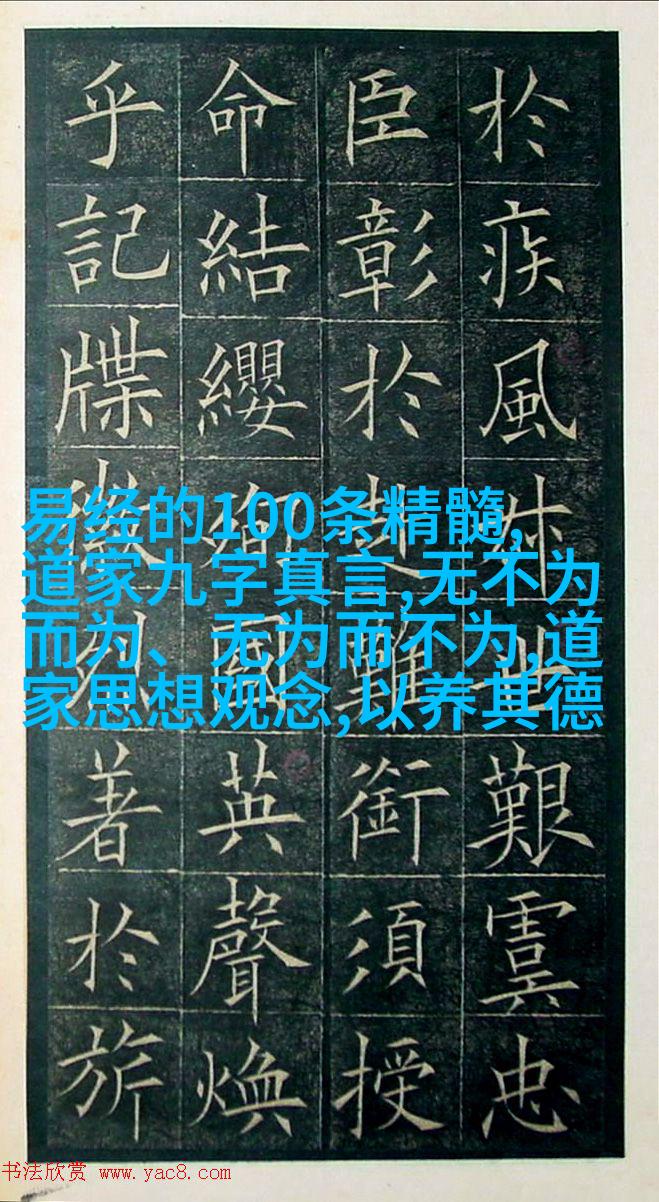 於疾風叔世艱虞忠
臣彰於赴難銜須授
命結纓殉國英聲煥
乎記牒徽烈著於旂
易经的100条精髓,
道家九字真言,无不为
而为、无为而不为,道
家思想观念,以养其德
书法欣赏 www.yac8.com